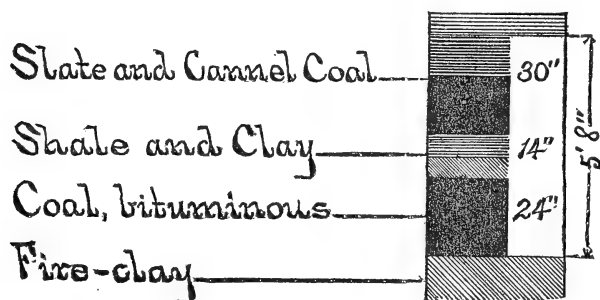 Slate and Cannel Coal 30"
Shale and Clay 14"
5' 8"
Coal, bituminous 24"
Fire-clay